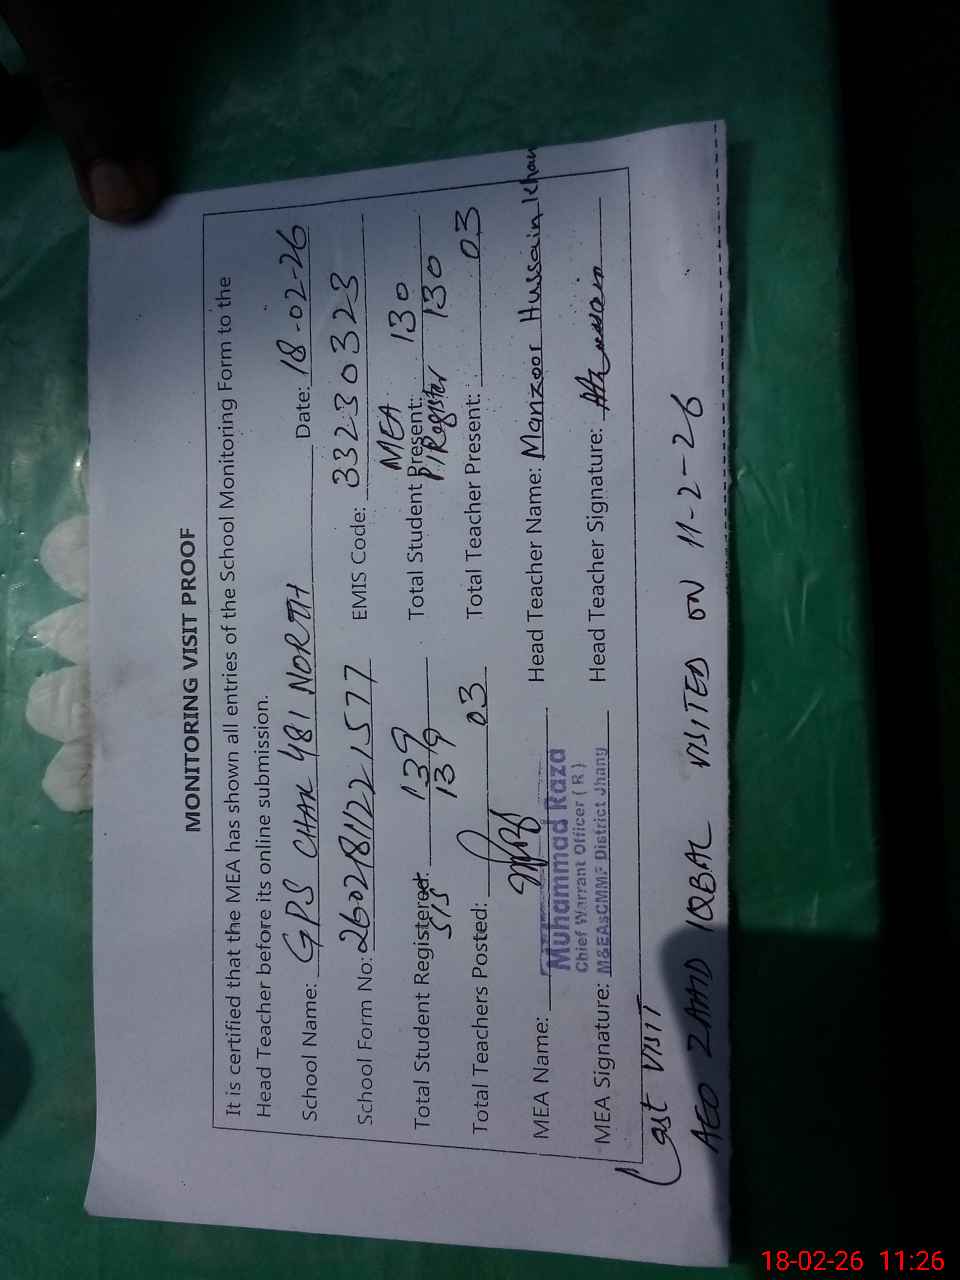 MONITORING VISIT PROOF
It is certified that the MEA has shown all entries of the School Monitoring Form to the
Head Teacher before its online submission.
School Name: GPS CHAK 481 NORTH Date: 18-02-26
School Form No: 26021811221577 EMIS Code: 33230323
Total Student Registered: 139 Total Student Present: MEA 130
S/S 139 P/Register 130
Total Teachers Posted: 03 Total Teacher Present: 03
MEA Name: Head Teacher Name: Manzoor Hussain Khan
Muhammad Raza
Chief Warrant Officer (R)
MEA Signature: M&EAsCMMF District Jhang Head Teacher Signature:
Last VISIT
AEO ZAAID IQBAL VISITED ON 11-2-26
18-02-26 11:26